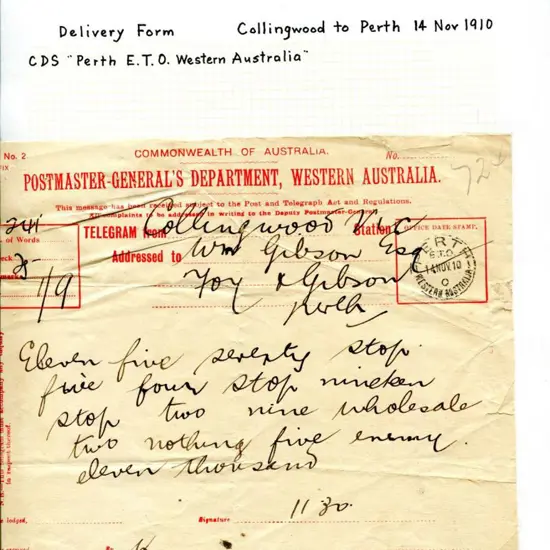 Delivery Form Collingwood to Perth 14 Nov 1910
CDS "Perth E.T.O. Western Australia"
No. 2
COMMONWEALTH OF AUSTRALIA.
No.
72
POSTMASTER-GENERAL'S DEPARTMENT, WESTERN AUSTRALIA.
This message has been received subject to the Post and Telegraph Act and Regulations.
All complaints to be addressed in writing to the Deputy Postmaster-General
of Words
TELEGRAM from Collingwood Vic Station
Addressed to Wm Gibson Esq
Foy & Gibson
Perth
1/9
OFFICE DATE STAMP.
PERTH
E.T.O.
14 NOV 10
WESTERN AUSTRALIA
Eleven five seventy stop
five four stop nineteen
stop two nine wholesale
two nothing five enemy.
eleven thousand
11 30
lodged,
Signature